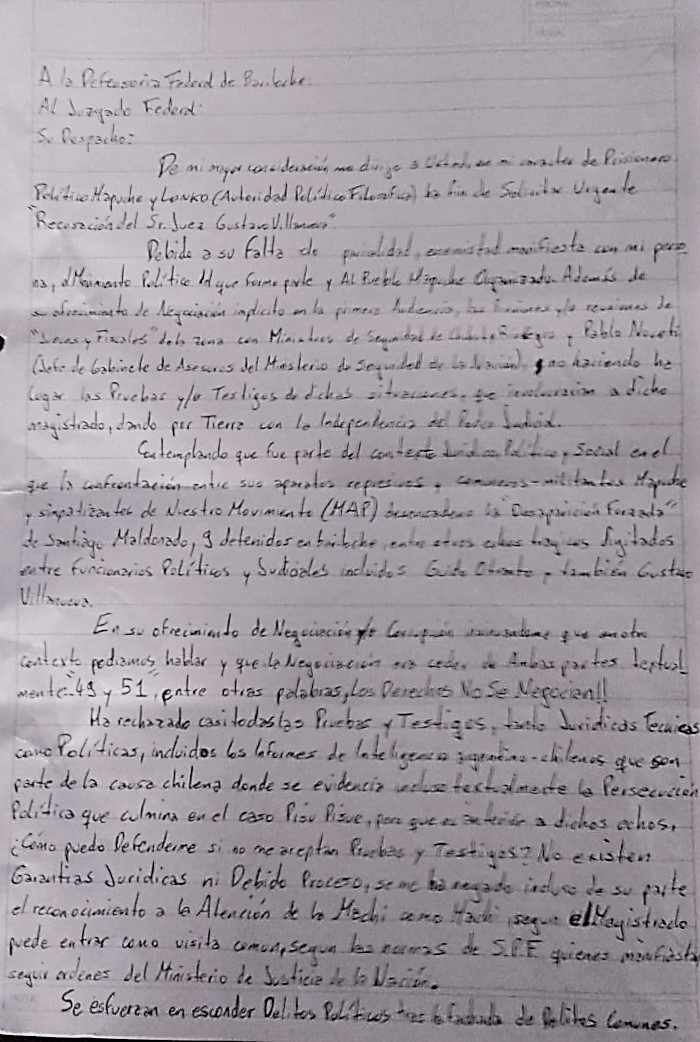 A la Defensoria Federal de Bariloche:
Al Juzgado Federal:
Su Despacho:
De mi mayor consideración me dirijo a Usted, en mi caracter de Prisionero
Político Mapuche y Lonko (Autoridad Político Filosófica) ha fin de Solicitar Urgente
"Recusación del Sr. Juez Gustavo Villanueva".
Debido a su falta de parcialidad, enemistad manifiesta con mi perso
na, el Movimiento Político del que formo parte y Al Pueblo Mapuche Organizado. Además de
su ofrecimiento de Negociación implicito en la primera Audiencia, las Reuniones y/o reuniones de
"Jueces y Fiscales" de la zona con Ministros de Seguridad de Chubut y Pablo Noceti
(Jefe de Gabinete de Asesores del Ministerio de Seguridad de la Nación), y no haciendo ha
lugar las Pruebas y/o Testigos de dichas situaciones, que involucrarian a dicho
magistrado, dando por Tierra con la Independencia del Poder Judicial.
Contemplando que fue parte del contexto Jurídico, Político y Social en el
que la confrontación entre sus aparatos represivos y comuneros-militantes Mapuche
y simpatizantes de Nuestro Movimiento (MAP) desencadena la "Desaparición Forzada"
de Santiago Maldonado, 9 detenidos en bariloche, entre otros echos tragicos digitados
entre Funcionarios Políticos y Judiciales incluidos Guido Otranto y también Gustavo
Villanueva.
En su ofrecimiento de Negociación y/o Corrupción que en otro
contexto podiamos hablar y que la Negociación era ceder de Ambas partes textual
mente "49 y 51", entre otras palabras, Los Derechos No Se Negocian!!
Ha rechazado casi todas las Pruebas y Testigos, tanto Juridicas Tecnicas
como Políticas, incluidos los Informes de Inteligencia argentino-chilenos que son
parte de la causa chilena donde se evidencia incluso textualmente la Persecución
Política que culmina en el caso Pisu Pisue, pero que es anterior a dichos echos.
¿Cómo puedo Defenderme si no me aceptan Pruebas y Testigos? No existen
Garantias Juridicas ni Debido Proceso, se me ha negado incluso de su parte
el reconocimiento a la Atención de la Machi como Machi, segun el Magistrado
puede entrar como visita comun, segun las normas de S.P.F. quienes manifiesta
seguir ordenes del Ministerio de Justicia de la Nación.
Se esfuerzan en esconder Delitos Políticos tras la fachada de Delitos Comunes.